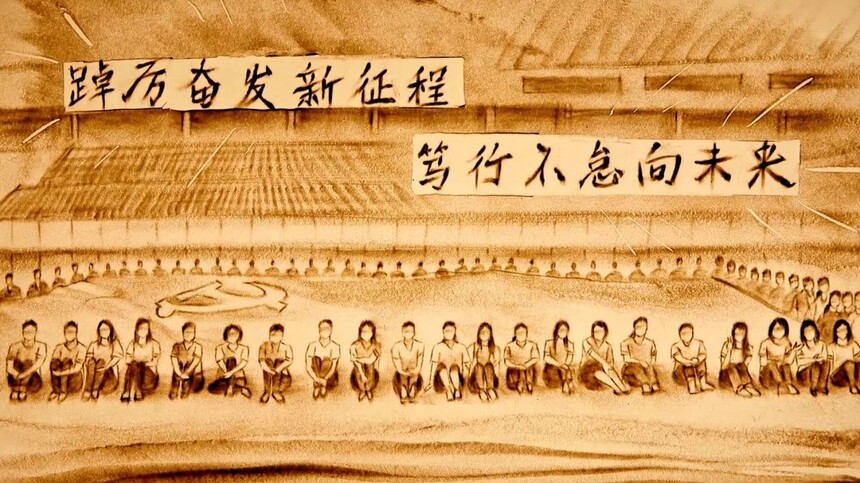 踔厉奋发新征程
笃行不怠向未来